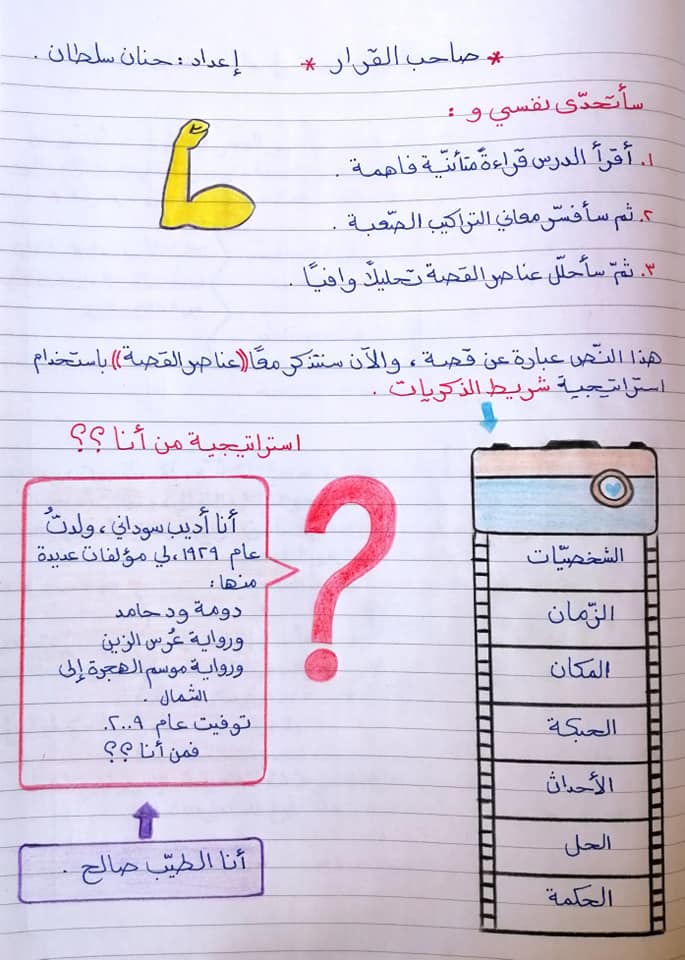 * صاحب القرار * إعداد : حنان سلطان .
سأتحدّى نفسي و :
١. أقرأ الدرس قراءةً متأنّية فاهمة .
٢. ثم سأفسّر معاني التراكيب الصّعبة .
٣. ثمّ سأحلّل عناصر القصة تحليلًا وافيًا .
هذا النّص عبارة عن قصة ، والآن سنتذكر معًا ((عناصر القصة)) باستخدام
استراتيجية شريط الذكريات .
الشخصيّات
الزّمان
المكان
الحبكة
الأحداث
الحل
الحكمة
استراتيجية من أنا ؟؟
أنا أديب سوداني ، ولدتُ
عام ١٩٢٩ ، لي مؤلفات عديدة
منها :
دومة ود حامد
ورواية عُرس الزين
ورواية موسم الهجرة إلى
الشمال .
توفيت عام ٢٠٠٩.
فمن أنا ؟؟
أنا الطيّب صالح .